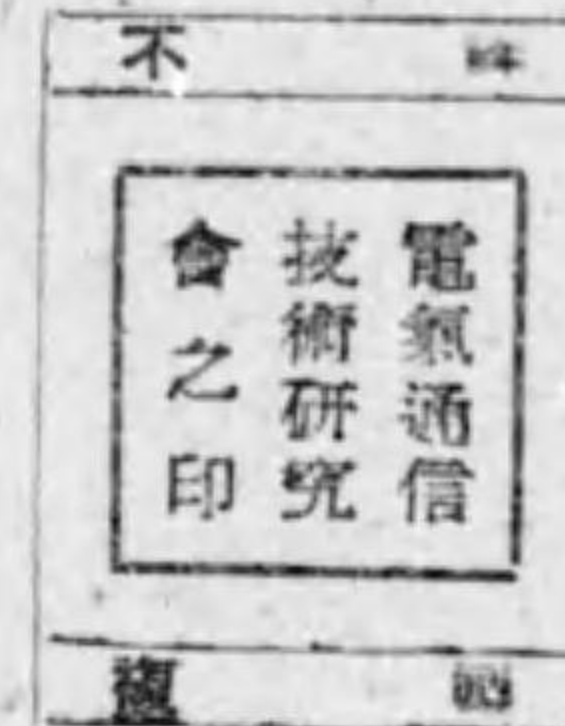 不
電氣通信
技術研究
會之印
複